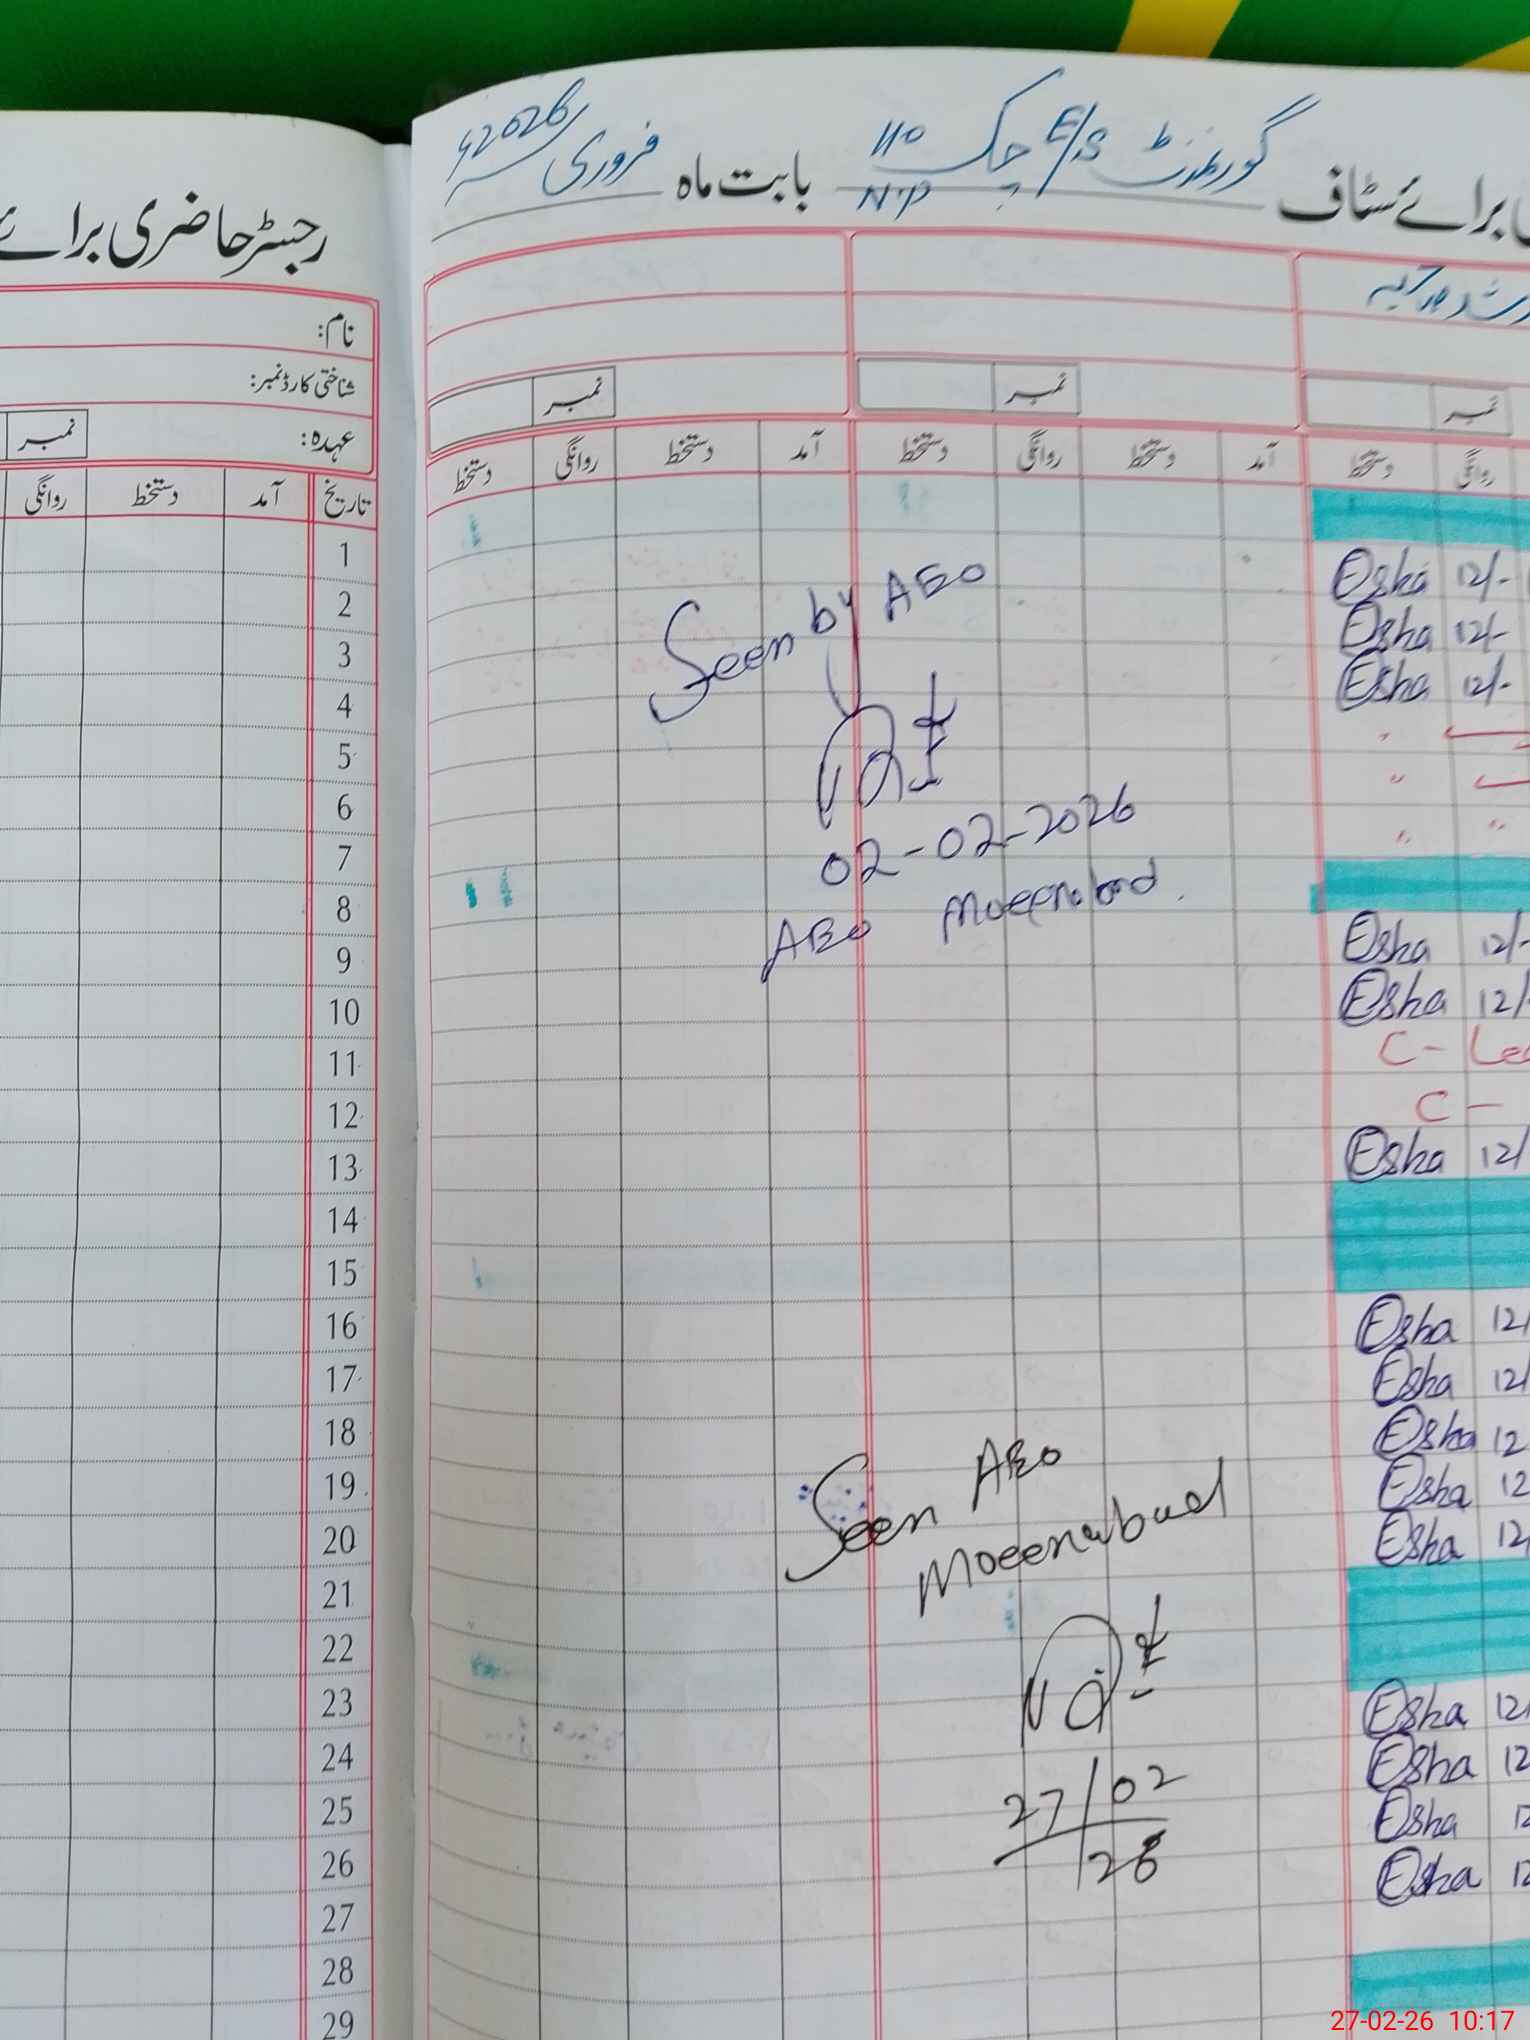 رجسٹر حاضری برائے
نام:
شناختی کارڈ نمبر:
عہدہ:
نمبر
تاریخ آمد دستخط روانگی
1
2
3
4
5
6
7
8
9
10
11
12
13
14
15
16
17
18
19
20
21
22
23
24
25
26
27
28
29
برائے سٹاف گورنمنٹ E/S چک 110 N.P بابت ماہ فروری 2026ء
نمبر نمبر نمبر
روانگی دستخط آمد دستخط روانگی دستخط آمد دستخط روانگی دستخط
Esha 12/-
Esha 12/-
Esha 12/-
" 
"
" "
Esha 12/-
Esha 12/-
C - Lea
C -
Esha 12/
Esha 12/
Esha 12/
Esha 12
Esha 12
Esha 12
Esha 12
Esha 12
Esha 12
Esha 12
Seen by AEO
02-02-2026
AEO Moeenabad.
Seen AEO
Moeenabad
27/02
26
27-02-26 10:17